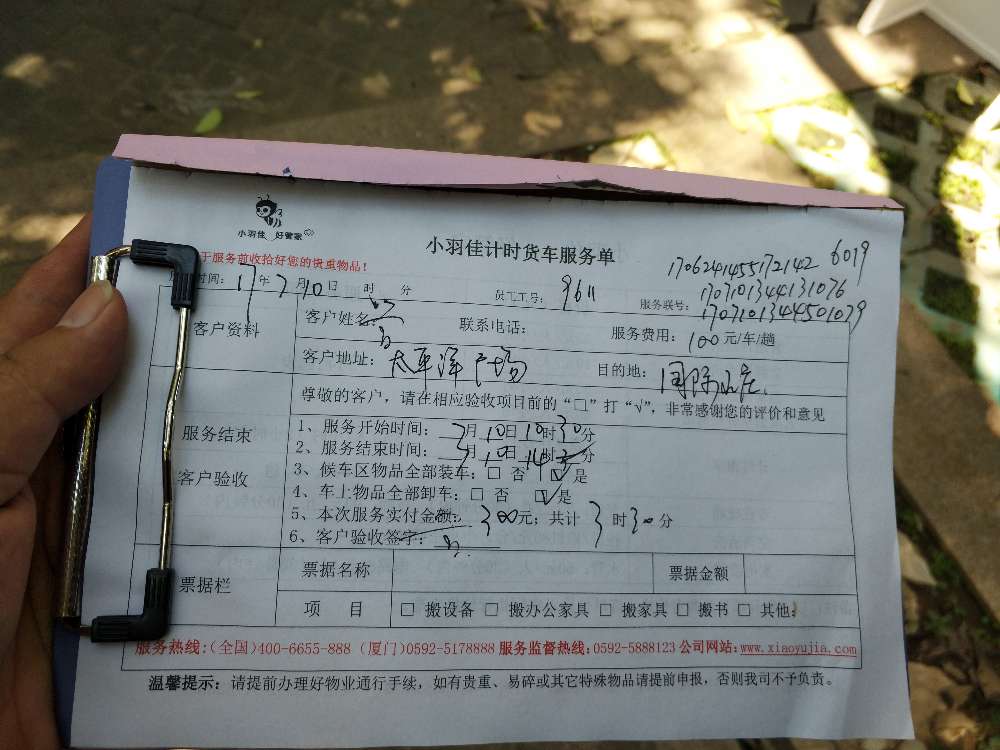 小羽佳 好管家
小羽佳计时货车服务单
于服务前收拾好您的贵重物品!
1706241455172142 6019
170710134413 1076
时间: 17年7月10日 时 分 员工工号: 9611 服务联号: 1707101344501079
客户资料 客户姓名: 联系电话: 服务费用: 100元/车/趟
客户地址: 太平洋广场 目的地: 国际
尊敬的客户，请在相应验收项目前的“□”打“√”，非常感谢您的评价和意见
服务结束
客户验收
1、服务开始时间: 7月10日10时30分
2、服务结束时间: 7月10日14时分
3、候车区物品全部装车: □ 否 ☑ 是
4、车上物品全部卸车: □ 否 ☑ 是
5、本次服务实付金额: 300元; 共计 3时30分
6、客户验收签字:
票据栏 票据名称 票据金额
项 目 □ 搬设备 □ 搬办公家具 □ 搬家具 □ 搬书 □ 其他:
服务热线:(全国)400-6655-888 (厦门)0592-5178888 服务监督热线:0592-5888123 公司网站:www.xiaoyujia.com
温馨提示: 请提前办理好物业通行手续，如有贵重、易碎或其它特殊物品请提前申报，否则我司不予负责。